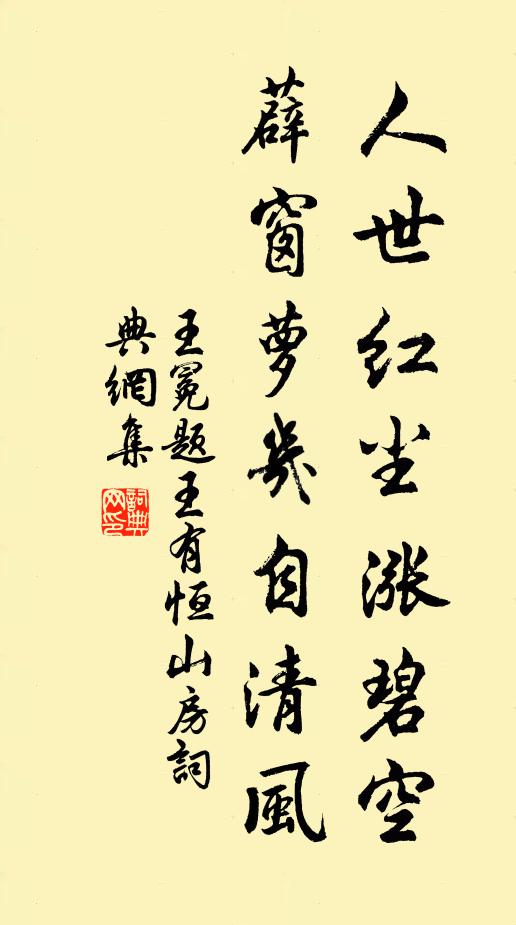 人世红尘涨碧空
薜窗萝幾自清風
王冕题王有恒山房詞
典網集
詞典网印